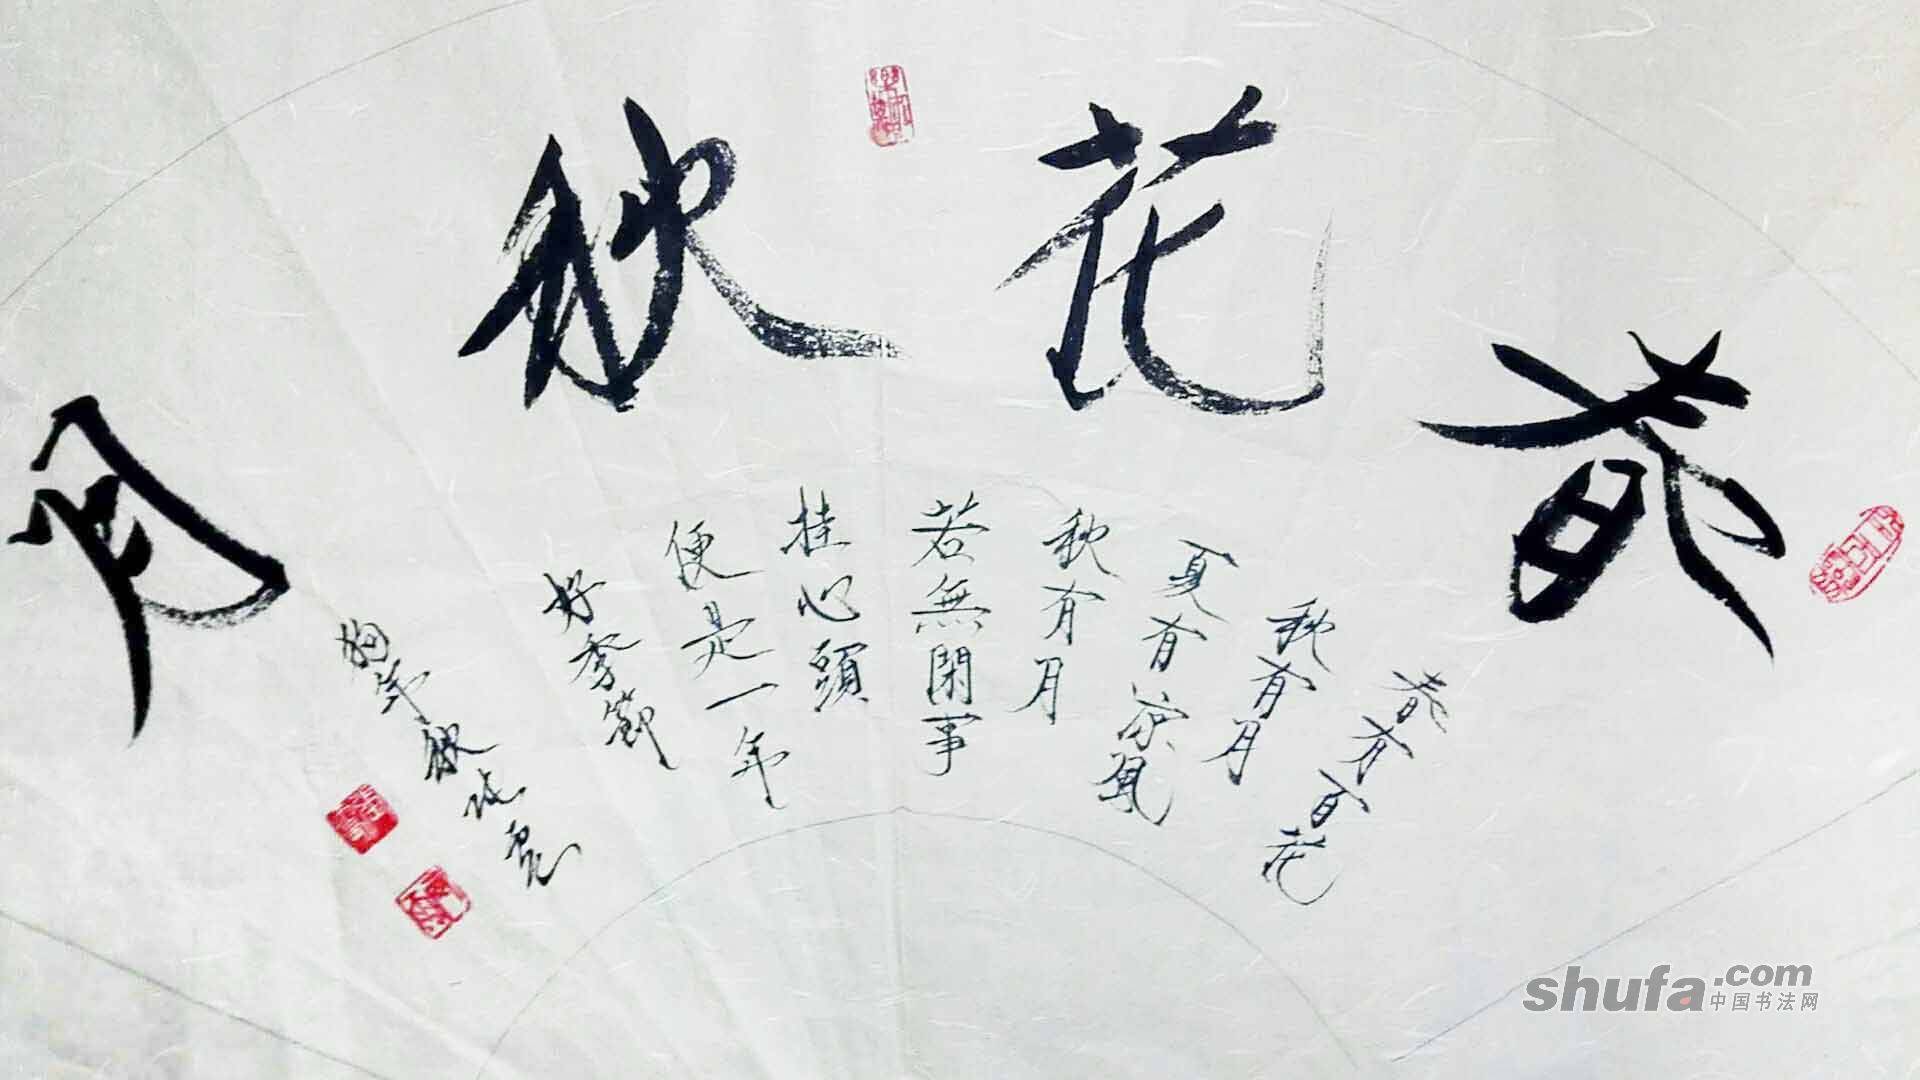 春花秋月
春有百花
秋有月
夏有凉風
秋有月
若無閑事
挂心頭
便是一年
好季節
狗年秋
shufa.com
中国书法网